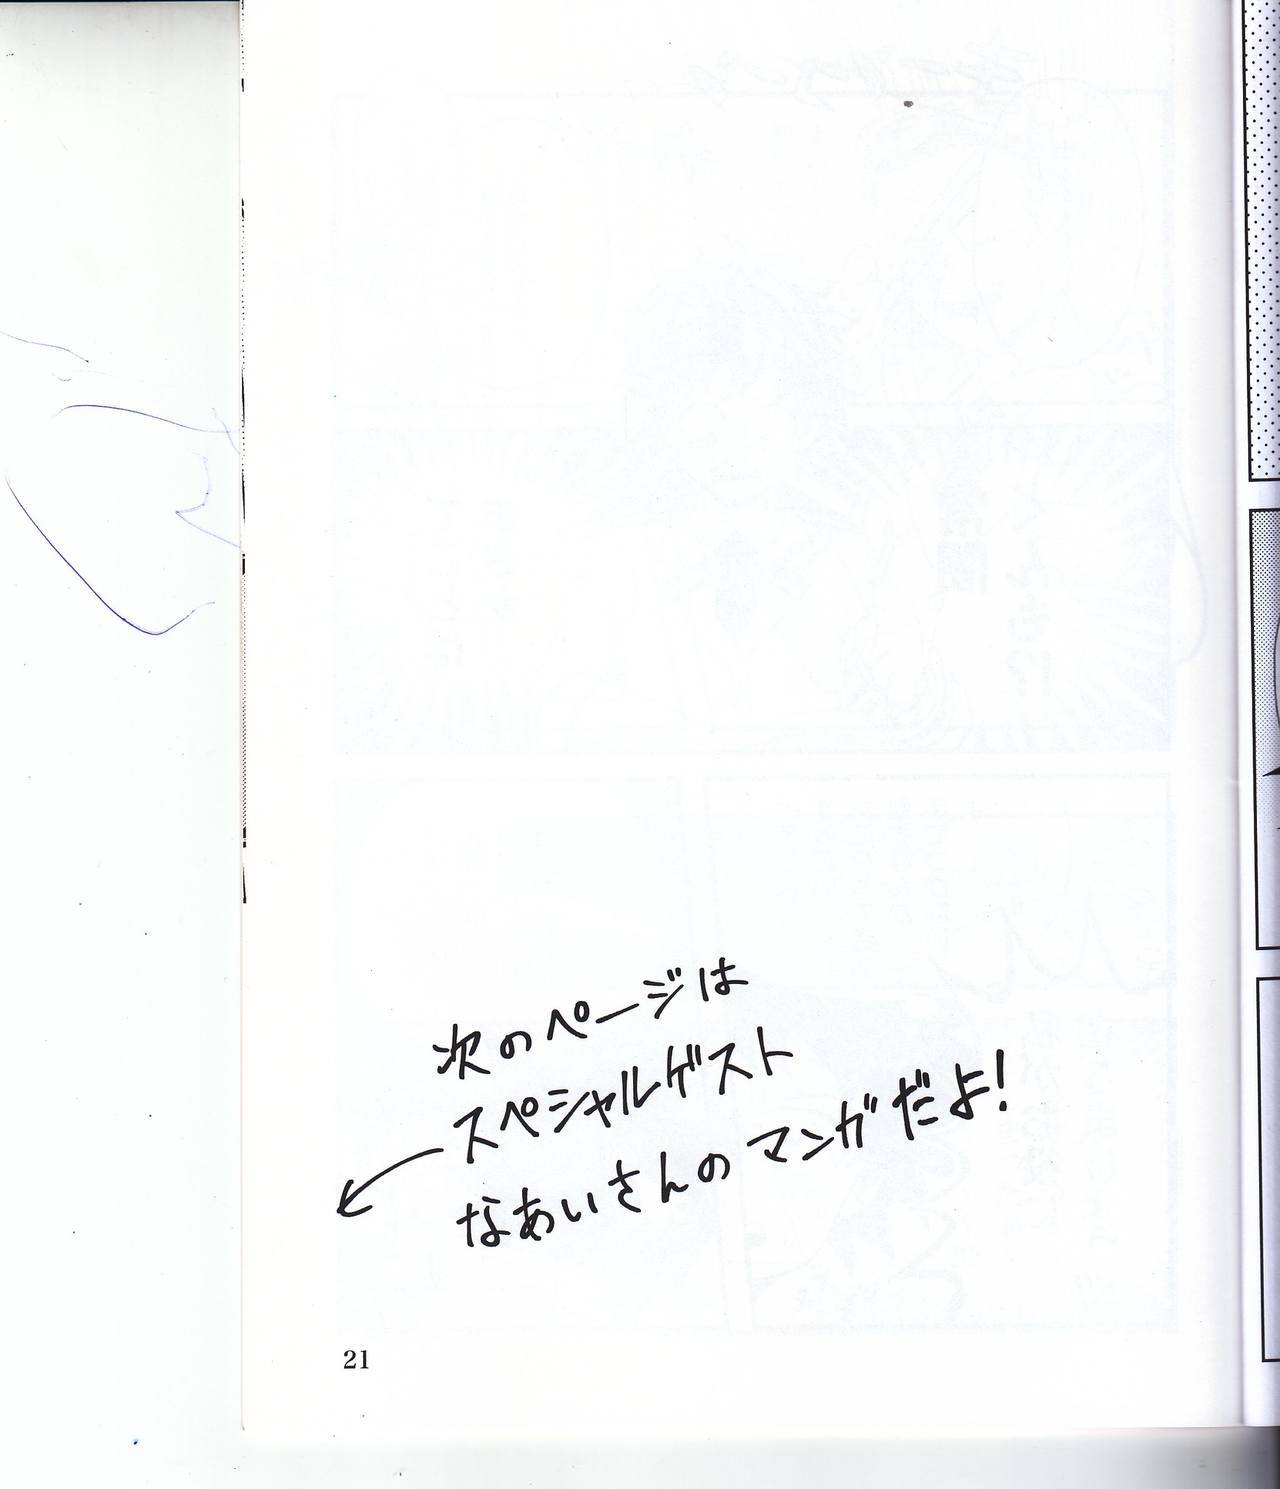 次のページは
スペシャルゲスト
なぁいさんのマンガだよ!
21